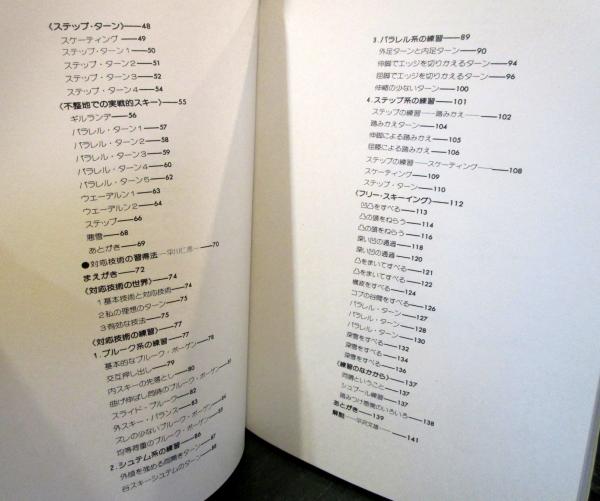 《ステップ・ターン》──48
スケーティング──49
ステップ・ターン1──50
ステップ・ターン2──51
ステップ・ターン3──52
ステップ・ターン4──54
《不整地での実戦的スキー》──55
ギルランデ──56
パラレル・ターン1──57
パラレル・ターン2──58
パラレル・ターン3──59
パラレル・ターン4──60
パラレル・ターン5──62
ウェーデルン1──63
ウェーデルン2──64
ステップ──66
悪雪──68
あとがき──69
●対応技術の習得法──平川仁彦──70
まえがき──72
《対応技術の世界》──74
1基本技術と対応技術──74
2私の理想のターン──75
3有効な技法──75
《対応技術の練習》──77
1.プルーク系の練習──77
基本的なプルーク・ボーゲン──78
交互押し出し──79
内スキーの先落とし──80
曲げ伸ばし同時のプルーク・ボーゲン──81
スライド・プルーク──82
外スキー・バランス──83
ズレの少ないプルーク・ボーゲン──84
均等荷重のプルーク・ボーゲン──85
2.シュテム系の練習──86
外傾を強める山開きターン──87
谷スキーシュテムのターン──88
3.パラレル系の練習──89
外足ターンと内足ターン──90
伸脚でエッジを切りかえるターン──94
屈脚でエッジを切りかえるターン──96
伸縮の少ないターン──100
4.ステップ系の練習──101
ステップの練習──踏みかえ──102
踏みかえターン──104
伸脚による踏みかえ──105
屈膝による踏みかえ──106
ステップの練習──スケーティング──108
スケーティング──109
ステップ・ターン──110
《フリー・スキーイング》──112
凹凸をすべる──113
凸の頭をねらう──114
凸の頭をねらう──116
深い凹の通過──118
深い凹の通過──120
凸をまいてすべる──121
凸をまいてすべる──122
横波をすべる──124
コブの谷間をすべる──126
パラレル・ターン──127
パラレル・ターン──128
パラレル・ターン──130
深雪をすべる──132
深雪をすべる──134
深雪をすべる──136
《練習のなかから》──137
同調ということ──137
シュプール練習──137
踏みつけ感覚のいろいろ──138
あとがき──139
解説──平沢文雄──141